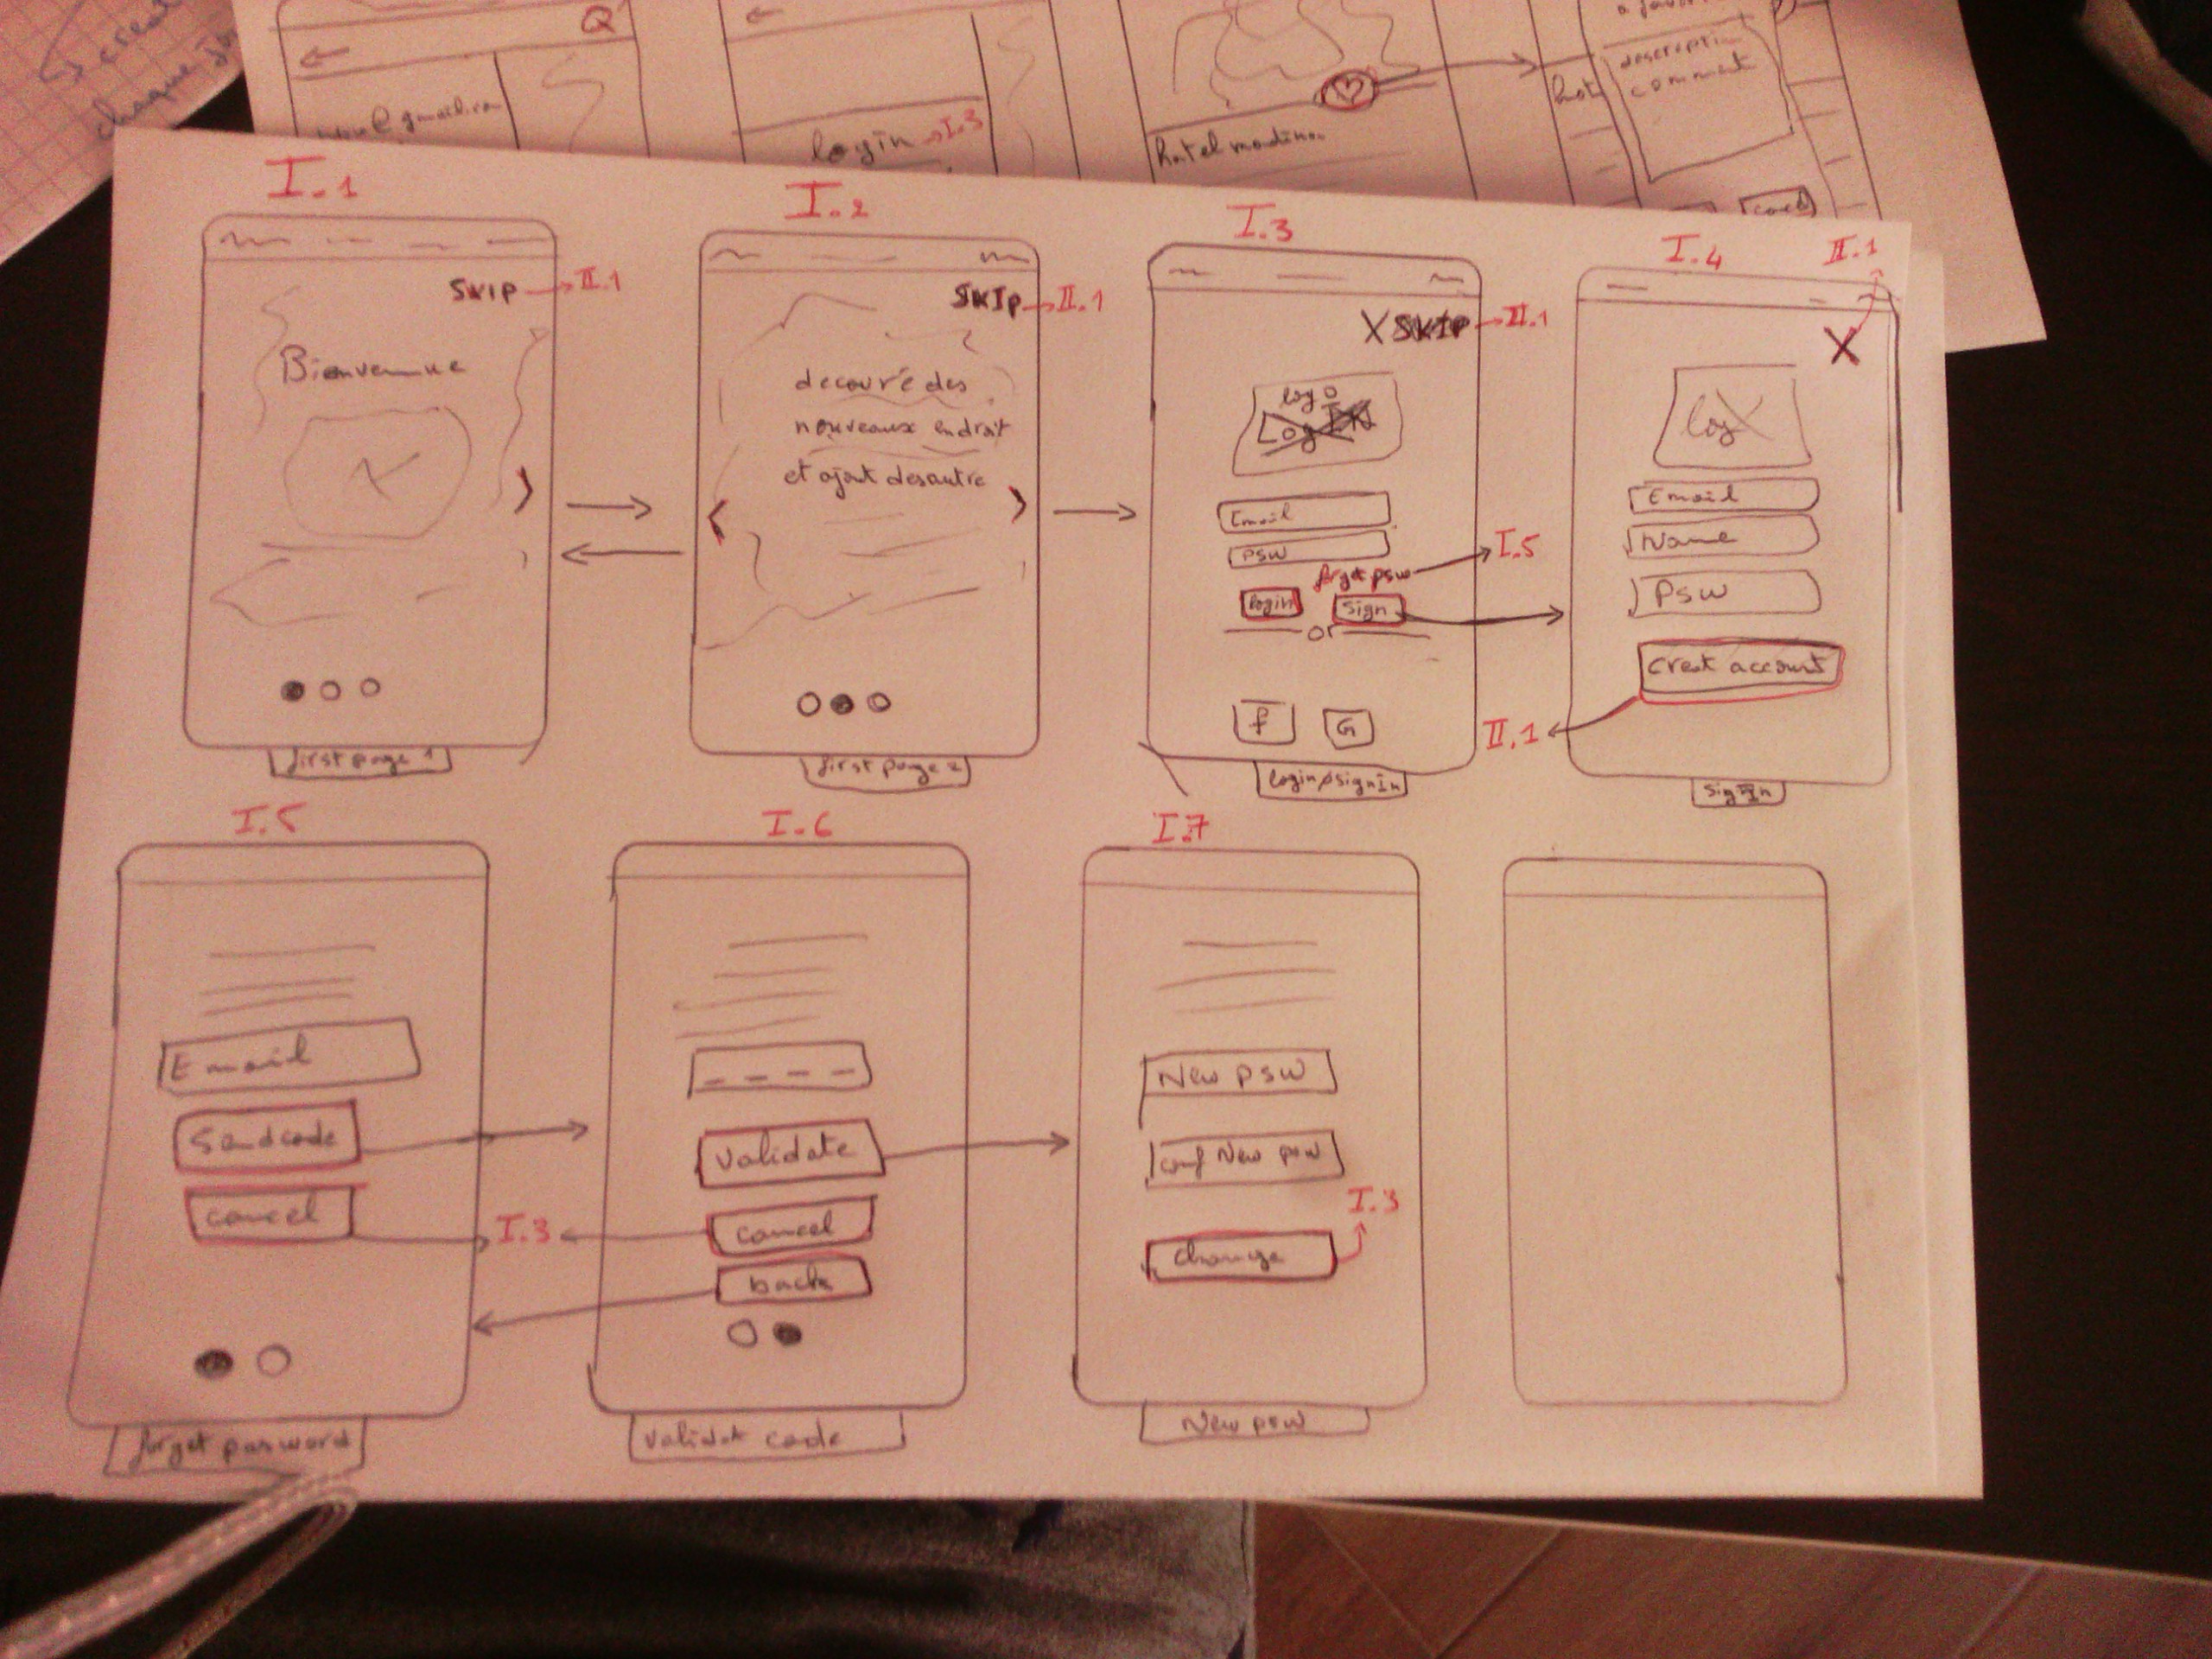 creat
chaque
Q
@gmail.com
login → I.3
hotel madina
hot
description
comment
cancel
I.1
SKIP → II.1
Bienvenue
first page 1
I.2
SKIP → II.1
decouvre des
nouveaux endroit
et ajout des autre
first page 2
I.3
X SKIP → II.1
logo
Log IN
Email
PSW
forget psw → I.5
login
Sign
or
f
G
login/signIn
I.4
II.1
X
logo
Email
Name
Psw
Creat account
II.1
SignIn
I.5
Email
Send code
cancel
I.3
forget password
I.6
_ _ _ _
Validate
cancel
back
Validat code
I.7
New psw
conf New psw
I.3
change
New psw